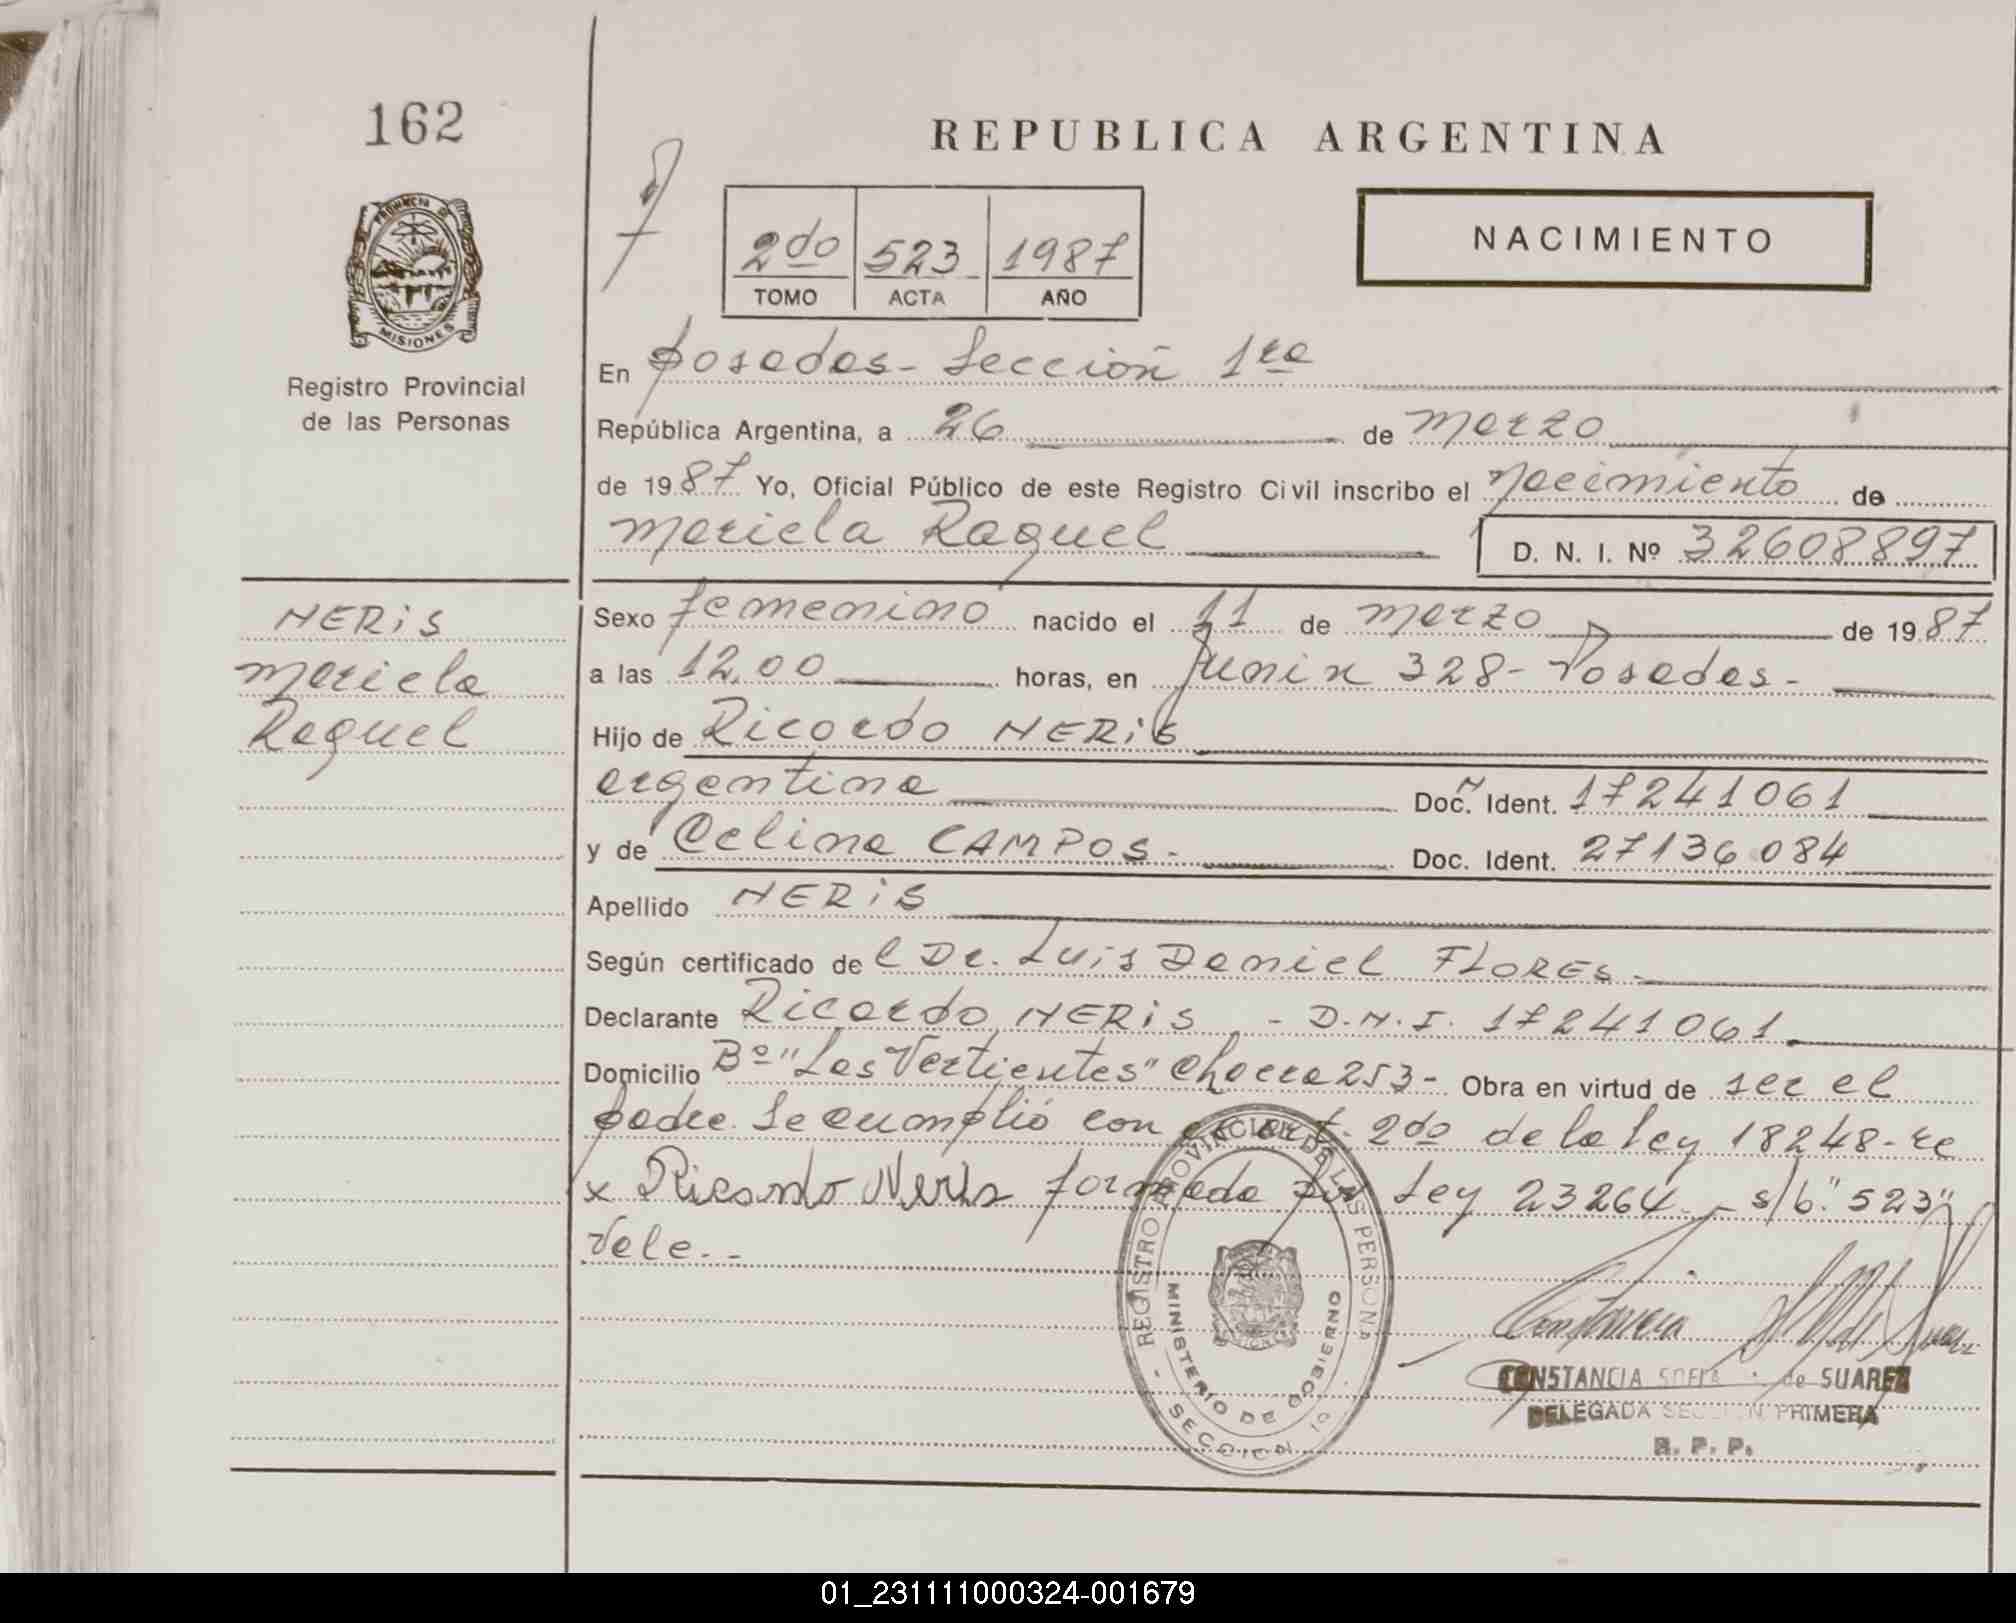 162
REPUBLICA ARGENTINA
PROVINCIA DE
MISIONES
Registro Provincial
de las Personas
2do 523 1987
TOMO ACTA AÑO
NACIMIENTO
En Posadas - Sección 1ra
República Argentina, a 26 de marzo
de 1987 Yo, Oficial Público de este Registro Civil inscribo el nacimiento de
Mariela Raquel D. N. I. Nº 32608897
NERiS
Mariela
Raquel
Sexo femenino nacido el 11 de marzo de 1987
a las 12,00 horas, en Junin 328 - Posadas -
Hijo de Ricardo NERiS
argentina Doc. Ident. 17241061
y de Celina CAMPOS - Doc. Ident. 27136084
Apellido NERiS
Según certificado del Dr. Luis Daniel FLORES -
Declarante Ricardo NERiS - D.N.I. 17241061
Domicilio Bº "Las Vertientes" Chacra 253 - Obra en virtud de ser el
padre. Se cumplió con el art. 2do de la Ley 18248 - re
x Ricardo Neris formada por Ley 23264 - s/b. "523"
Vale. -
REGISTRO PROVINCIAL DE LAS PERSONAS
MINISTERIO DE GOBIERNO
SECCION 1º
CONSTANCIA SOFIA de SUAREZ
DELEGADA SECCION PRIMERA
R. P. P.
01_231111000324-001679